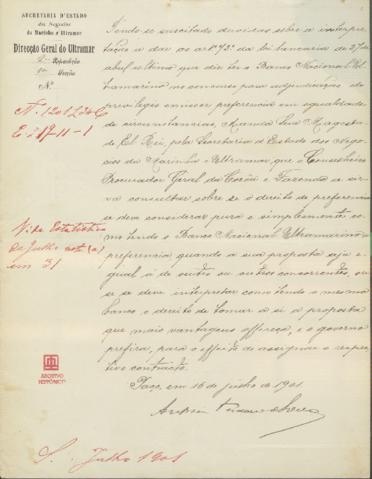 SECRETARIA D'ESTADO
da Marinha e Ultramar
Direcção Geral do Ultramar
Repartição
Secção
N.º
Tendo-se suscitado duvidas sobre a interpre-
tação a dar ao artº 73º da lei bancaria de 27 de
abril ultimo que diz ter o Banco Nacional Ul-
tramarino no concurso para adjudicação do
privilegio emissor preferencia em egualdade
de circumstancias, Manda Sua Magesta-
de El-Rei, pela Secretaria d'Estado dos Nego-
cios da Marinha e Ultramar, que o Conselheiro
Procurador Geral da Corôa e Fazenda se sir-
va consultar sobre se o direito de preferencia
se deve considerar puro e simplesmente co-
mo tendo o Banco Nacional Ultramarino a
preferencia quando a sua proposta seja e-
gual á de outro ou outros concorrentes, ou
se se deve interpretar como tendo o mesmo
banco o direito de tomar a si a proposta
que mais vantagens offereça, e o governo
prefira, para o effeito de assignar o respe-
ctivo contracto.
Paço, em 16 de junho de 1901
de Julho
em 31
ARQUIVO
HISTÓRICO
Julho 1901